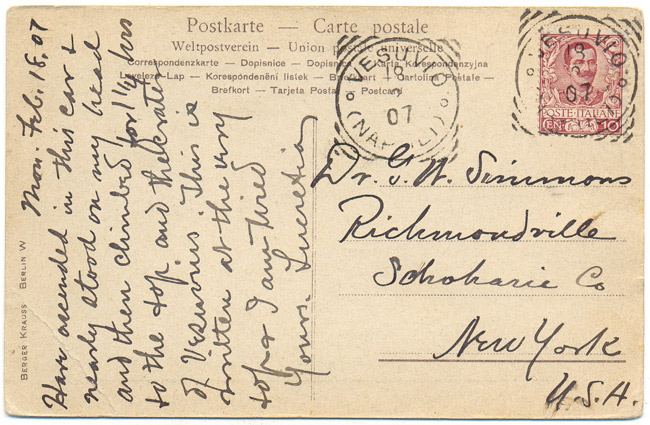 Postkarte — Carte postale
Weltpostverein — Union postale universelle
Correspondenzkarte — Dopisnice — Dopisnica — Karta Korespondencyjna
Levelező-Lap — Korespondenční lístek — Brevkort — Cartolina Postale —
Brefkort — Tarjeta Postal — Postcard
VESUVIO
18
2
07
(NAPOLI)
VESUVIO
18
2
07
POSTE ITALIANE
CENT. 10
Mon. Feb. 18, 07
Have ascended in this car &
nearly stood on my head
and then climbed for 1 1/4 hrs
to the top and the crater
of Vesuvius. This is
written at the very
top & I am tired
Yours. Lucretia
Dr. G. W. Simmons
Richmondville
Schoharie Co
New York
U.S.A.
BERGER KRAUSS BERLIN W